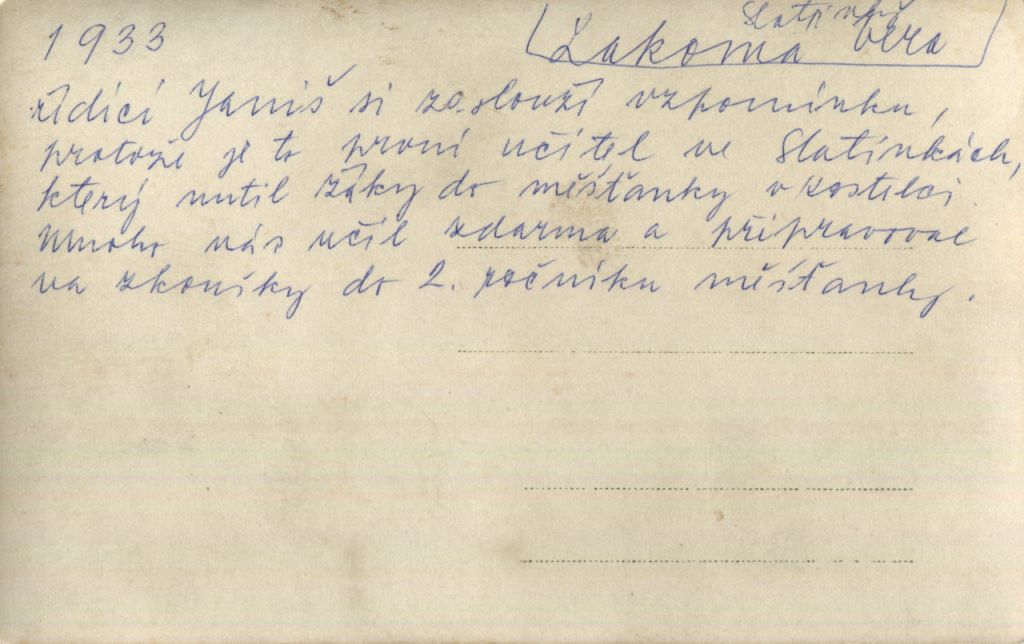 1933
Slatinky
Lakomá Věra
řídící Janiš si zaslouží vzpomínku,
protože je to první učitel ve Slatinkách,
který nutil žáky do měšťanky v Kostelci
Mnoho nás učil zdarma a připravoval
na zkoušky do 2. ročníku měšťanky.